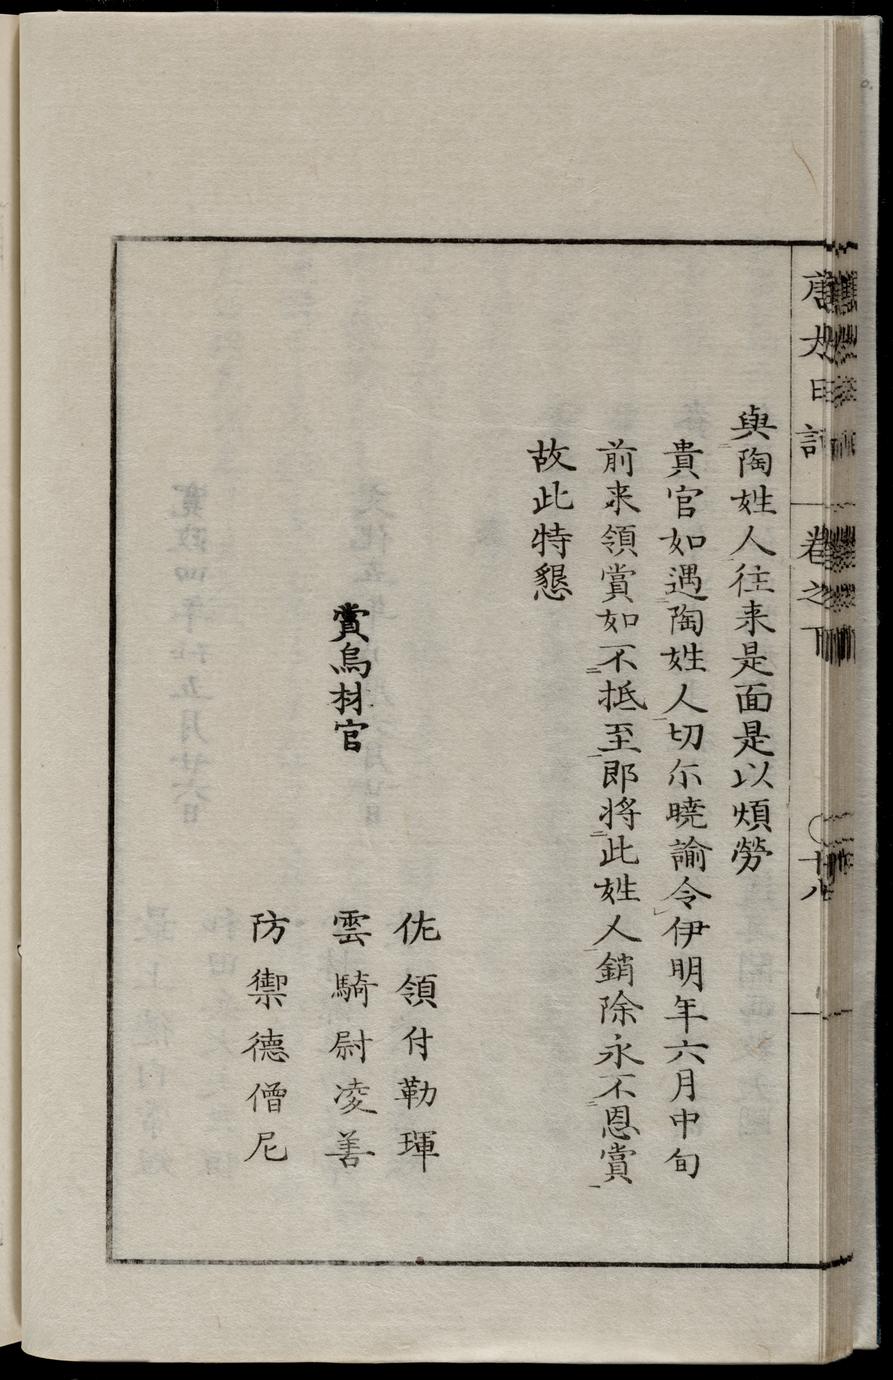 唐太日記
卷之下
十八
與陶姓人往来是面是以煩勞
貴官如遇陶姓人切尓曉諭令伊明年六月中旬
前来領賞如不抵至即将此姓人銷除永不恩賞
故此特懇
賞烏林官
佐領付勒琿
雲騎尉凌善
防禦德僧尼